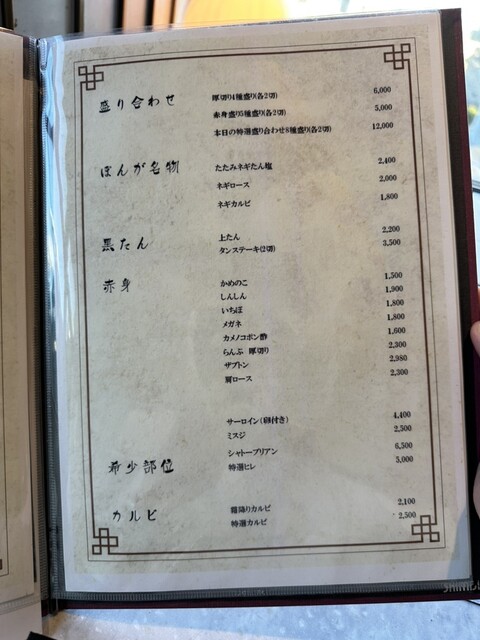 盛り合わせ
厚切り4種盛り(各2切) 6,000
赤身盛り5種盛り(各2切) 5,000
本日の特選盛り合わせ8種盛り(各2切) 12,000
ぽんが名物
たたみネギたん塩 2,400
ネギロース 2,000
ネギカルビ 1,800
黒たん
上たん 2,200
タンステーキ(2切) 3,500
赤身
かめのこ 1,500
しんしん 1,900
いちぼ 1,800
メガネ 1,800
カメノコポン酢 1,600
らんぷ 厚切り 2,300
ザブトン 2,980
肩ロース 2,300
サーロイン(卵付き) 4,400
ミスジ 2,500
シャトーブリアン 6,500
希少部位
特選ヒレ 5,000
カルビ
霜降りカルビ 2,100
特選カルビ 2,500